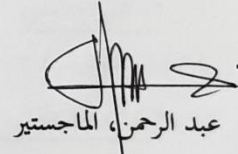 عبد الرحمن، الماجستير